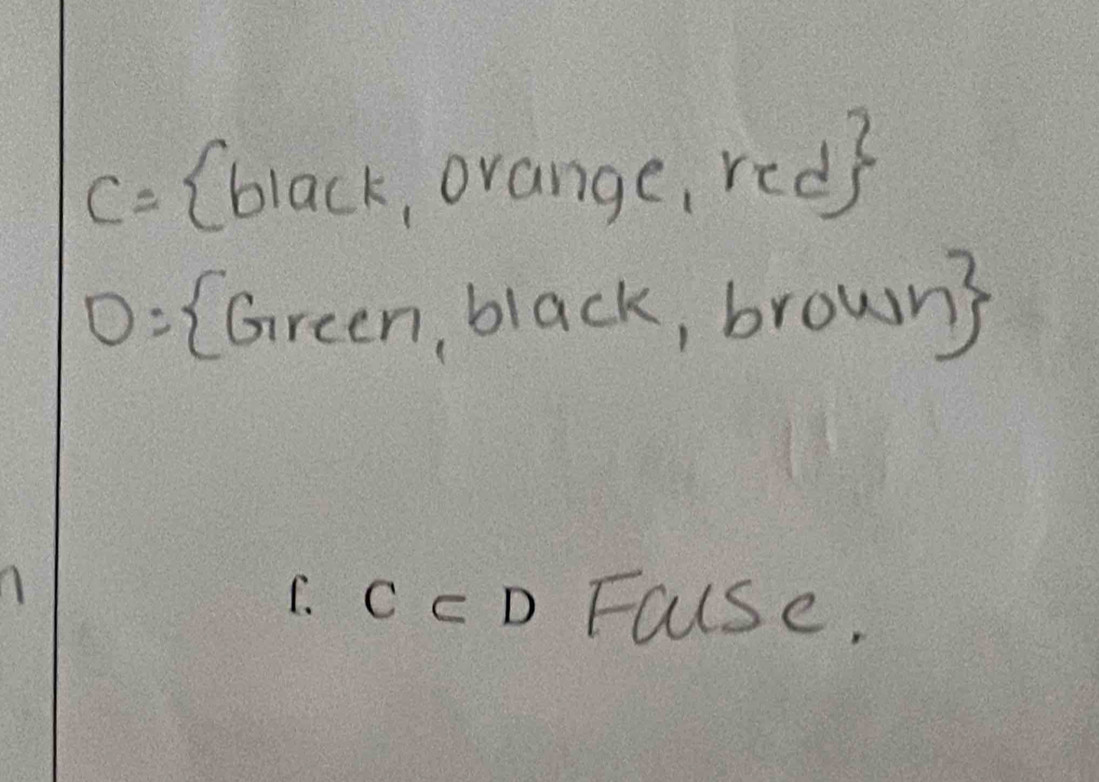 C={black, orange, red}
D={Green, black, brown}
f. C ⊂ D False.